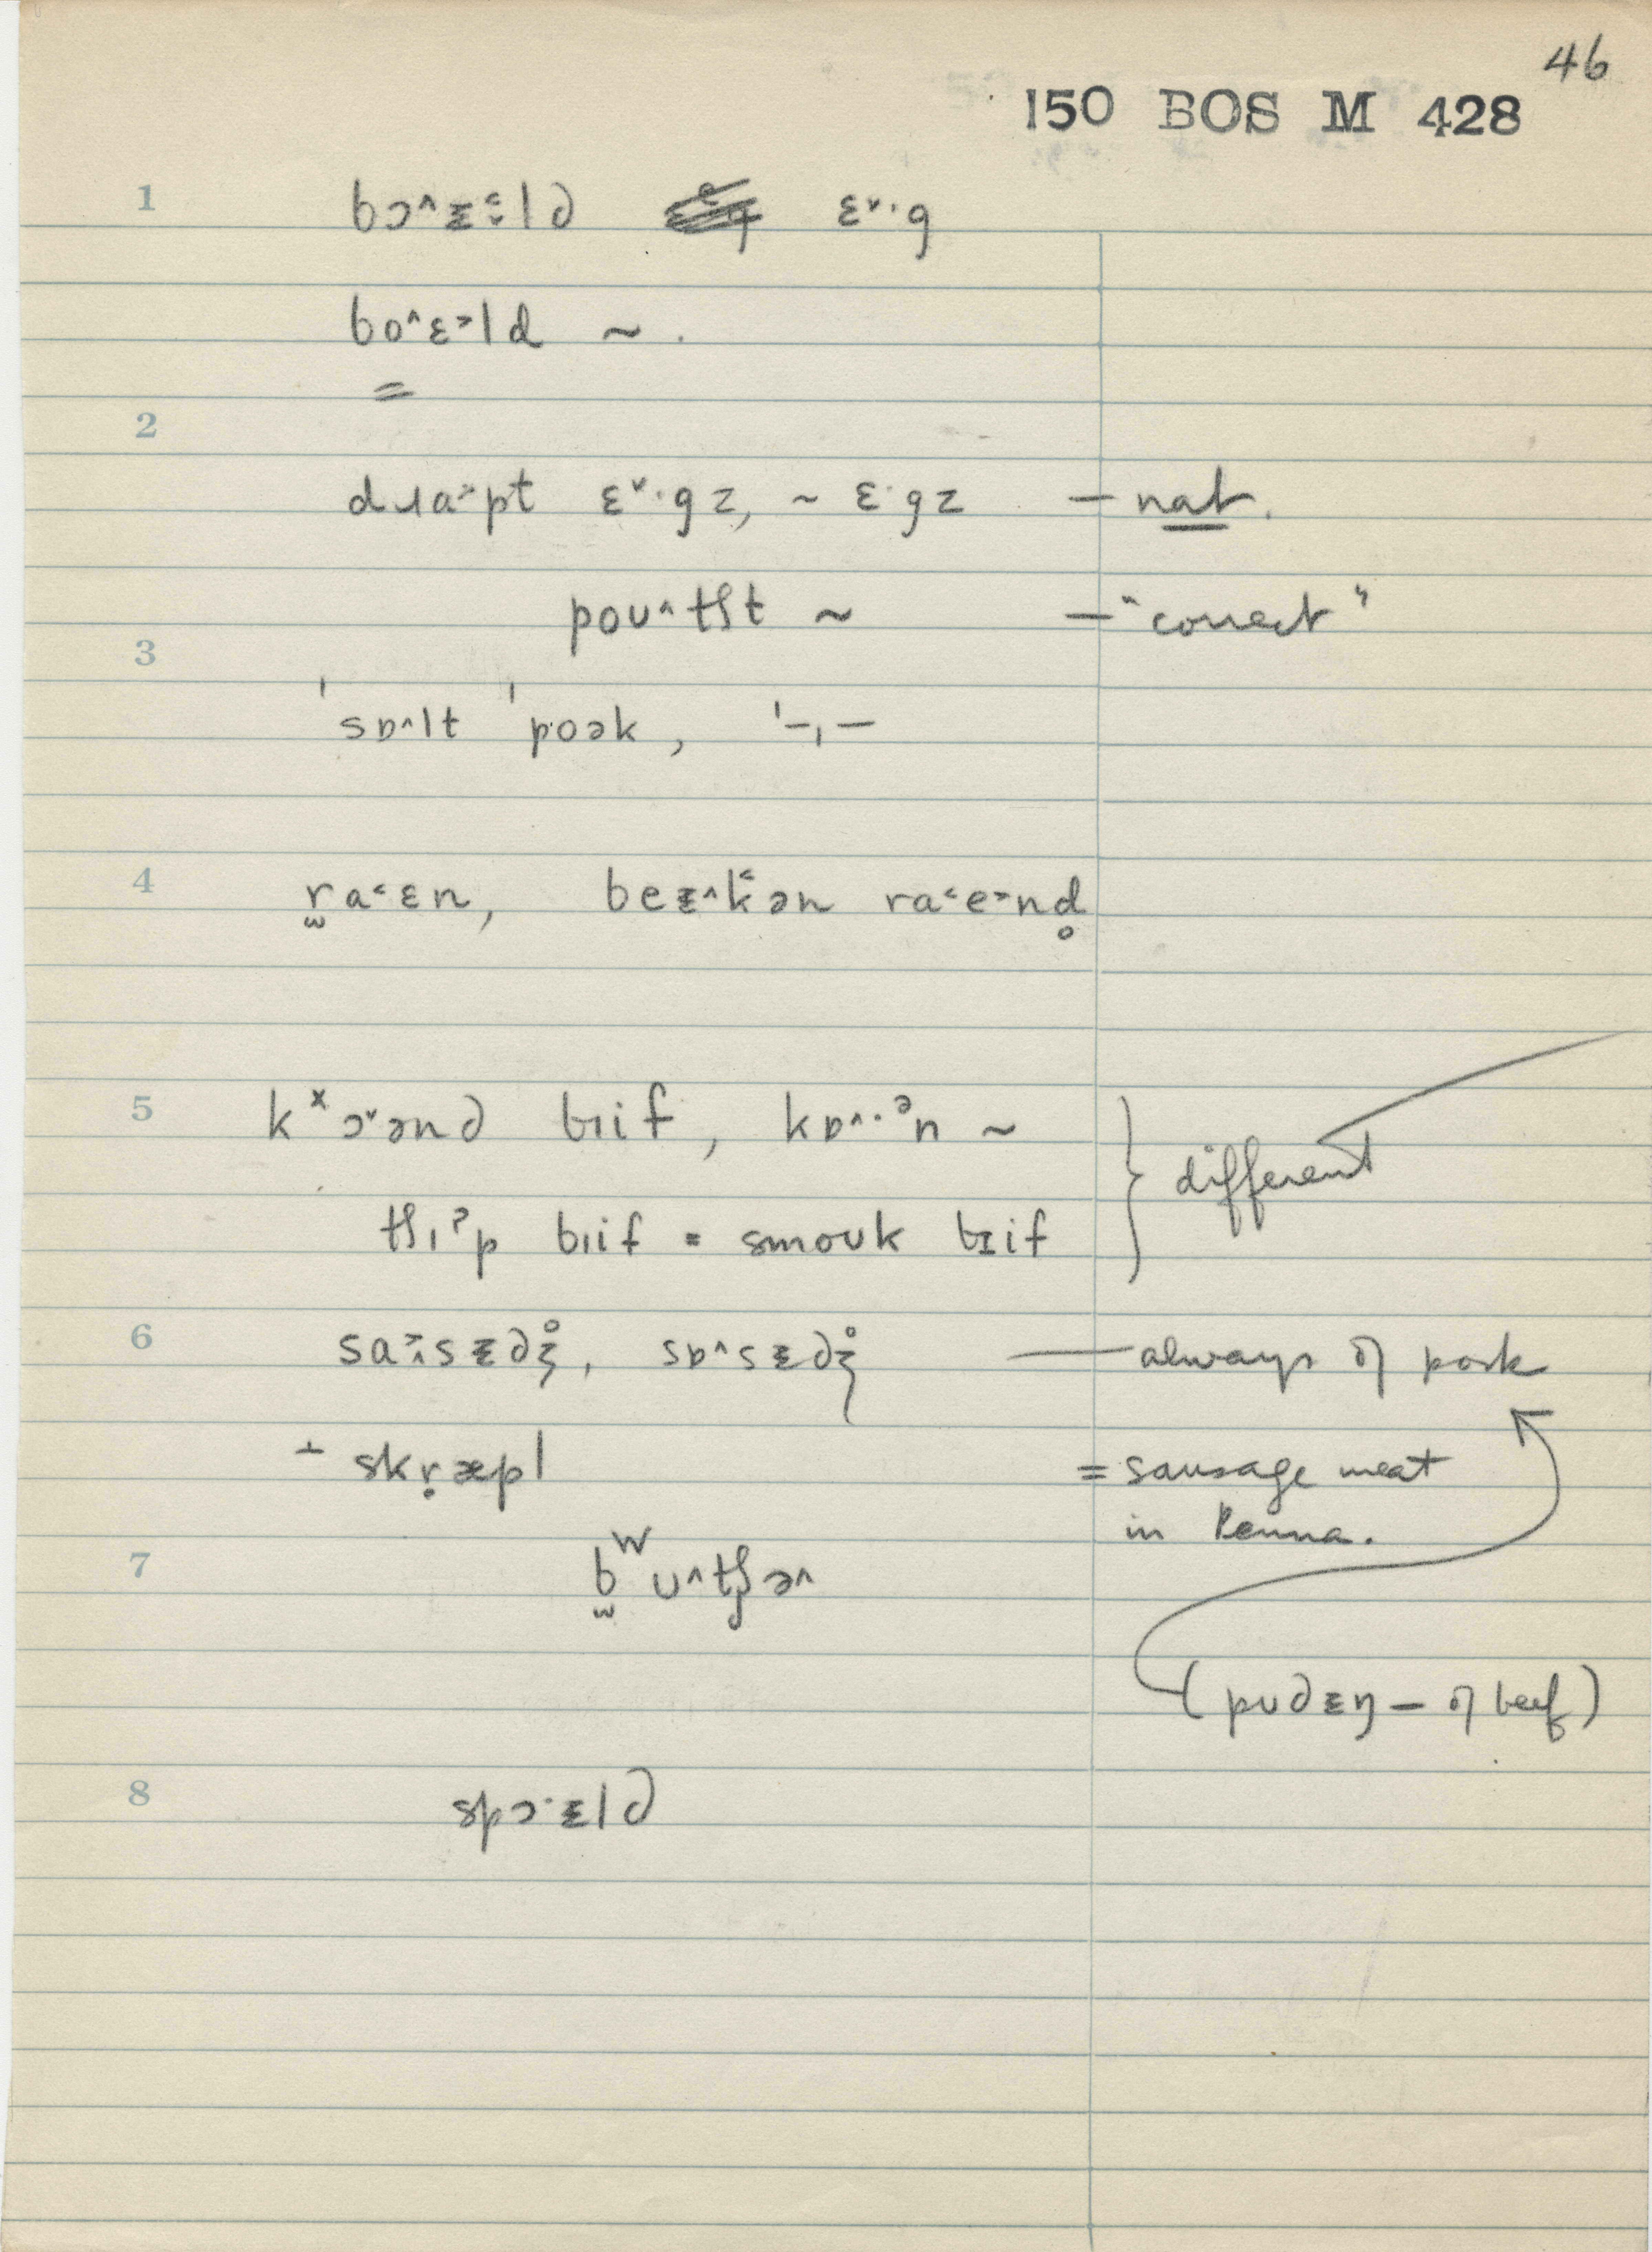 46
150 BOS M 428
1 bɔ^ᵻld ɛ˅·g
boˆɛ˃ld ~ .
=
2
dɹa˃pt ɛ˅·gz, ~ ɛ·gz — nat.
poʊ^tʃt ~ — "correct"
3
ˈsɒ^lt ˈpoək, ˈ–ˌ–
4 ra˂ɛn, beᵻ^k˂ən ra˂e˃nd̥
5 kˣɔ˅ənd bɪif, kɒ^·ᵊn ~ } different
tʃɪˀp bɪif = smoʊk bɪif
6 sɒ^sᵻdʒ̊ — always of pork
skr̥æpl = sausage meat
in Penna.
7 bʷʊ^tʃə^
(pʊdᵻŋ — of beef)
8 spɔ·ᵻld